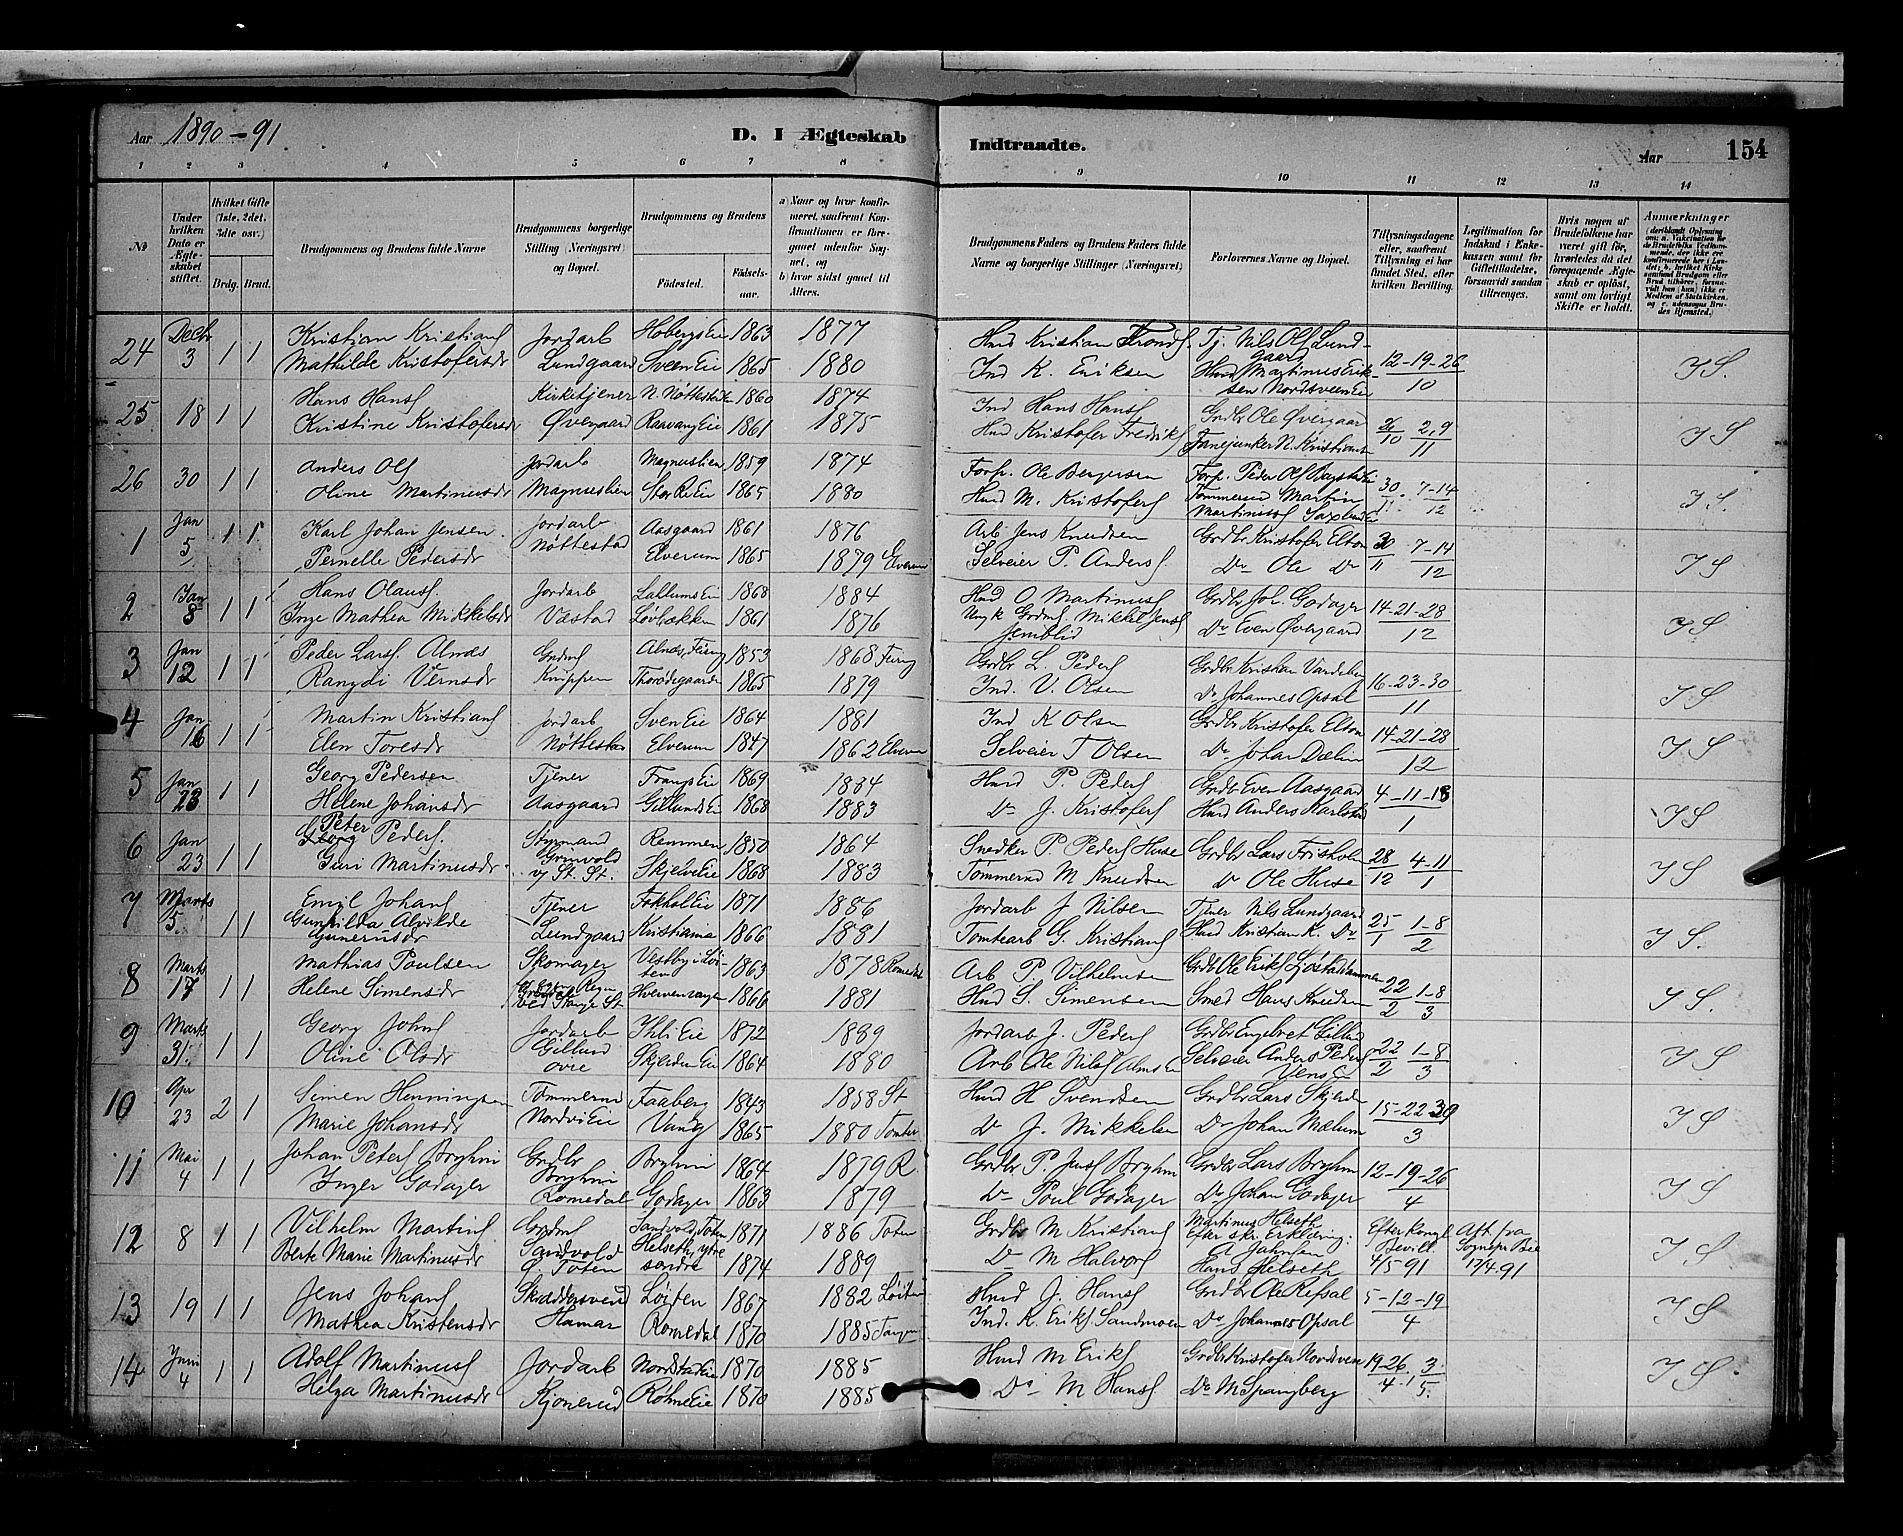 Aar 1890-91 D. I Ægteskab Indtraadte. Aar 154
1 2 3 4 5 6 7 8 9 10 11 12 13 14
No
Under hvilken Dato er Ægteskabet stiftet.
Hvilket Gifte (1ste, 2det, 3die osv.)
Brdg. Brud.
Brudgommens og Brudens fulde Navne
Brudgommens borgerlige Stilling (Næringsvei) og Bopæl.
Brudgommens og Brudens
Fødested. Fødselsaar.
a) Naar og hvor konfirmeret, saafremt Konfirmationen er foregaaet udenfor Sognet, og
b) hvor sidst gaaet til Alters.
Brudgommens Faders og Brudens Faders fulde Navne og borgerlige Stillinger (Næringsvei)
Forlovernes Navne og Bopæl.
Tillysningsdagene eller, saafremt Tillysning ei har fundet Sted, efter hvilken Bevilling.
Legitimation for Indskud i Enkekassen samt for Giftetilladelse, forsaavidt saadan tiltrænges.
Hvis nogen af Brudefolkene har været gift før, hvorledes da det foregaaende Ægteskab er opløst, samt om lovligt Skifte er holdt.
Anmærkninger
24 Decbr 3 1 1 Kristian Kristians Jordarb Hobergs Eie 1863 1877 Hmd Kristian Tronds. Tj. Nils Ols Lundgaard 12-19-26/10 IS.
Mathilde Kristofersdr Lundgaard Sveen Eie 1865 1880 Ind K. Eriksen Hmd Martinus Eriksen Nordsveen Eie
25 18 1 1 Hans Hans Kirketjener N. Nöttestad 1860 1874 Ind Hans Hans Grdbr Ole Övergaar 26/10 2,9/11 IS
Kristine Kristofersdr Övergaard Raavang Eie 1861 1875 Hmd Kristofer Fredriks N. Kristians
26 30 1 1 Anders Ols Jordarb Magnuslien 1859 1874 Forp. Ole Bergersen Forp. Peder Ols 30/11 7-14/12 IS.
Oline Martinusdr Magnuslien Eie 1865 1880 Hmd M. Kristofers Tömmermd Martin Martinuss
1 Jan 5 1 1 Karl Johan Jensen Jordarb Aasgaard 1861 1876 Arb Jens Knudsen Grdbr Kristofer Elton 30/11 7-14/12 IS
Pernelle Pedersdr Nöttestad Elverum 1865 1879 Elverum Selveier P. Anders Do Ole Do
2 Jan 8 1 1 Hans Olaus. Jordarb Lallums Ei 1868 1884 Hmd O Martinus Grdbr Joh. Godager 14-21-28/12 IS
Inge Mathea Mikkelsdr Væstad Lövbækken 1861 1876 Ungk Grdms. Mikkel Jens Jemblid Do Even Övergaard
3 Jan 12 1 1 Peder Lars. Alnæs Grdms Alnæs, Furnes 1853 1868 Furn Grdbr L. Peders Grdbr Kristian 16-23-30/11 IS
Rangdi Vernsdr Knippen Thorsdsgaarden 1865 1879 Ind. V. Olsen Do Johannes Opsal
4 Jan 16 1 1 Martin Kristians Jordarb Sven Eie 1864 1881 Ind K Olsen Grdbr Kristofer Elton 14-21-28/12 IS
Elen Toresdr Nöttestad Elverum 1847 1862 Elverum Selveier T Olsen Do Johan Dælin
5 Jan 23 1 1 Georg Pedersen Tjener Frangs Eie 1869 1884 Hmd P. Peders Grdbr Even Aasgaard 4-11-18/1 IS
Helene Johansdr Aasgaard Gillunds Ei 1868 1883 Do J. Kristofers Hmd Anders Karlstad
6 Jan 23 1 1 Peter Georg Peders. Styrmand Remmen 1850 1864 Snedker P. Peders Huse Grdbr Lars Frisholm 28/12 4-11/1 IS
Guri Martinusdr v/ St. St. Skjelve Eie 1868 1883 Tömmermd M Knudsen Do Ole Huse
7 Marts 5. 1 1 Emil Johans Tjener Fokhol Eie 1871 1886 Jordarb J Nilsen Tjener Nils Lundgaard 25/1 1-8/2 IS.
Gunhilda Alvilde Gunerusdr Lundgaard Kristiania 1866 1881 Tomtearb G. Kristians Hmd Kristian K. Do
8 Marts 17 1 1 Mathias Poulsen Skomager Vestby i Löiten 1863 1878 Romedal Arb P. Vilhelmsen Grdb Ole Eriks 22/2 1-8/3 IS.
Helene Simensdr ved Stange St Hverven 1866 1881 Hmd S. Simensen Smed Hans Knudsen
9 Marts 31. 1 1 Georg Johs Jordarb Ihle Eie 1872 1889 Jordarb J. Peders Grdbr Engebret Gillund 22/2 1-8/3 IS
Oline Olsdr Gillund övre Skjerden Ei 1864 1880 Arb Ole Nils Selveier Anders Peders
10 Apr 23 2 1 Simen Henningsen Tömmermd Faaberg 1843 1858 St Hmd H Svendsen Grdbr Lars Skjerden 15-22-30/3 IS
Marie Johansdr Nordvi Eie Vang 1865 1880 Tomter Do J. Mikkelsen Do Johan Mælum
11 Mai 4 1 1 Johan Peters Bryhni Grdbr Bryhni 1864 1879 R Grdbr P. Jens Bryhni Grdbr Lars Bryhni 12-19-26/4 IS
Inger Godager Bryhni Romedal Godager 1863 1879 Do Poul Godager Do Johan Godager
12 8 1 1 Vilhelm Martins Grdms Sandvold, Toten 1871 1886 Toten Grdbr M Kristians Martinus Helseth Efter skr. Erklæring: Efter Kongl Bevill. 4/5 91 Att. fra Sognepr. 17/4 91 IS
Berte Marie Martinusdr Sandvold Ö. Toten Helseth, ytre söndre 1874 1889 Do M Halvors A Jahnsen Hans Helseth
13 19 1 1 Jens Johans Skræddersvend Löiten 1867 1882 Löiten Hmd J. Hans Grdbr Ole Refsal 5-12-19/4 IS
Mathea Kristensdr Hamar Romedal 1870 1885 Tangen Ind. K. Eriks Sandmoen Do Johannes Opsal
14 Juni 4 1 1 Adolf Martinus Jordarb Nordstad Eie 1870 1885 Hmd M Eriks Grdbr Kristofer Nordsven 19-26/4. 3/5. IS
Helga Martinusdr Kjonerud Rohne Eie 1870 1885 Do M Hans Do M Spangberg